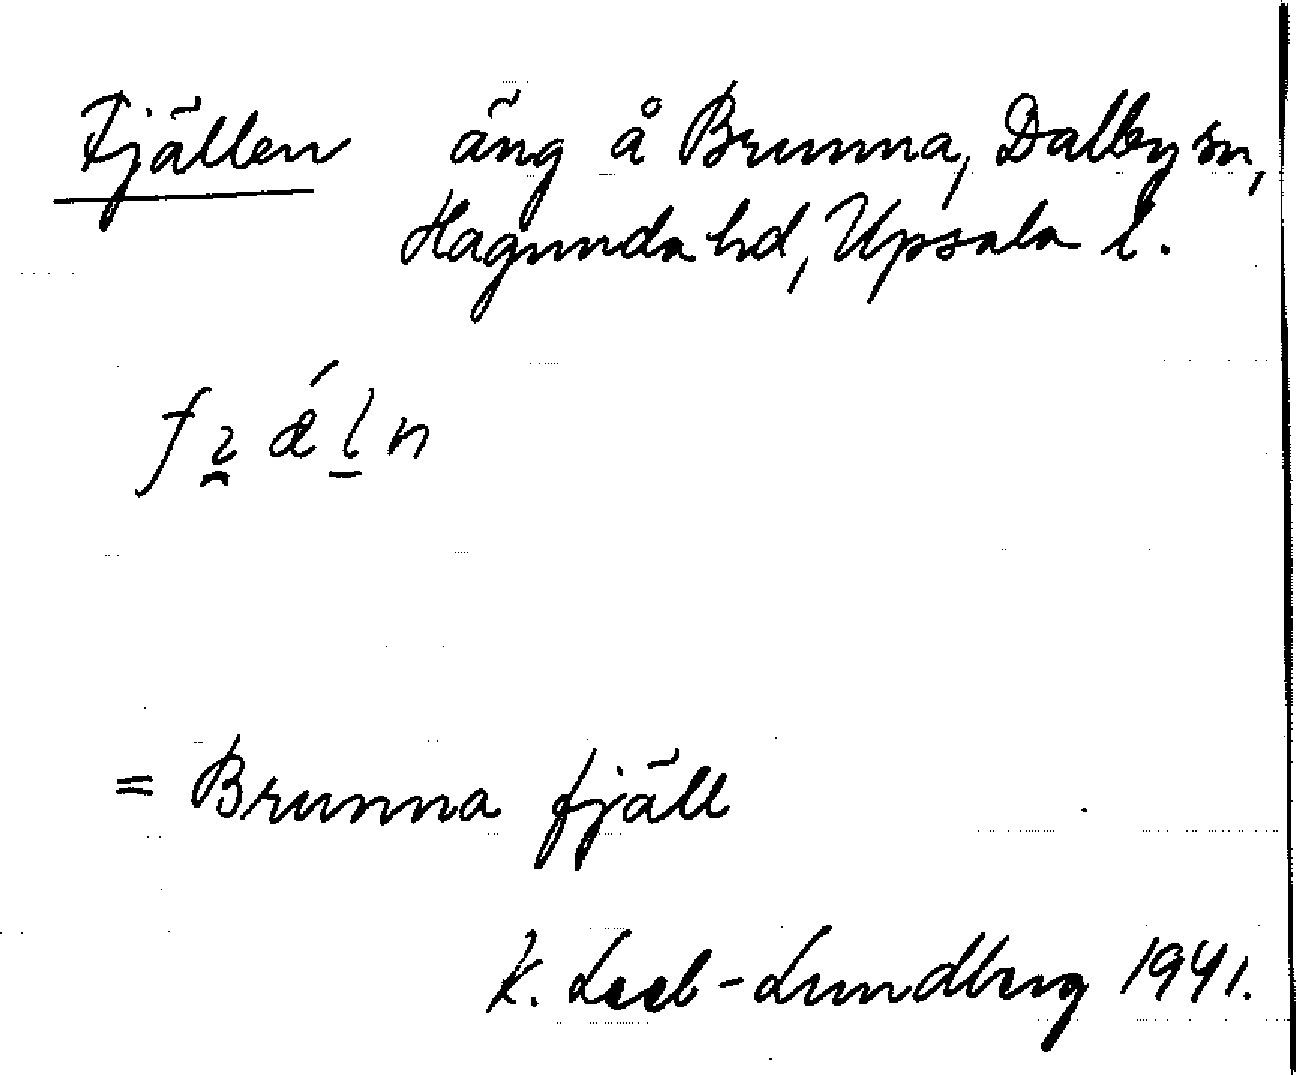 Fjällen äng å Brunna, Dalby sn,
Hagunda hd, Upsala l.
= Brunna fjäll
K. Leeb-Lundberg 1941.